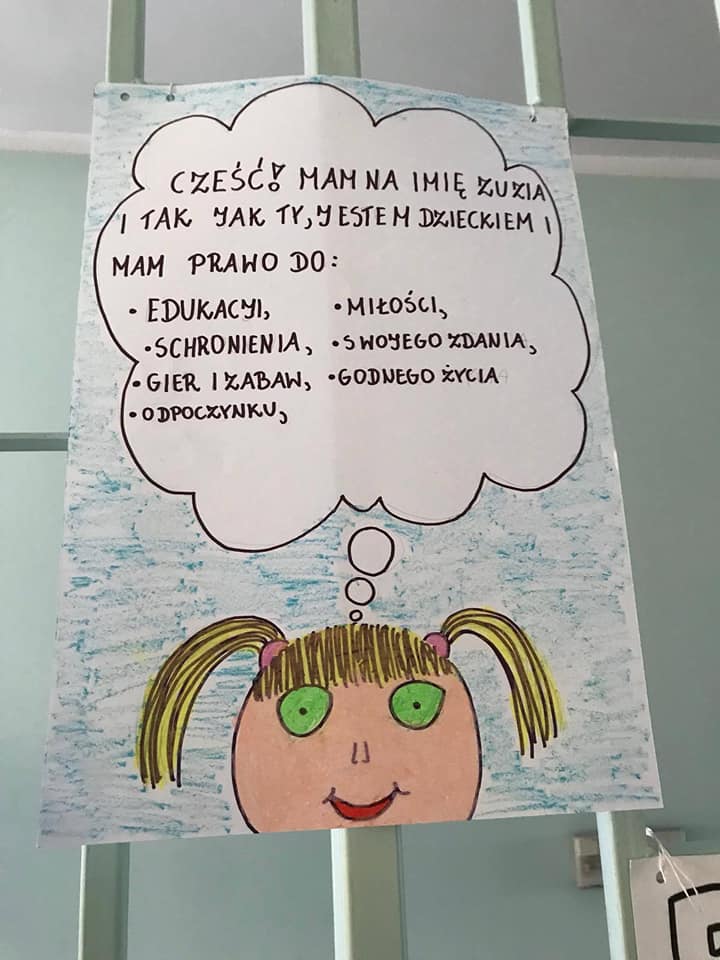 CZEŚĆ! MAM NA IMIĘ ZUZIA
I TAK JAK TY, JESTEM DZIECKIEM I
MAM PRAWO DO:
• EDUKACJI, • MIŁOŚCI,
• SCHRONIENIA, • SWOJEGO ZDANIA,
• GIER I ZABAW, • GODNEGO ŻYCIA
• ODPOCZYNKU,